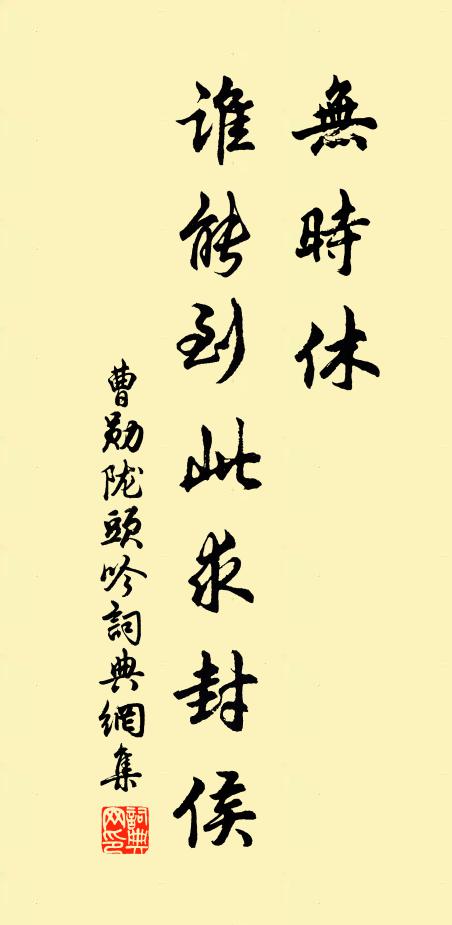 無時休
誰能到此求封侯
曹勛陇頭吟詞典網集
詞典
网印